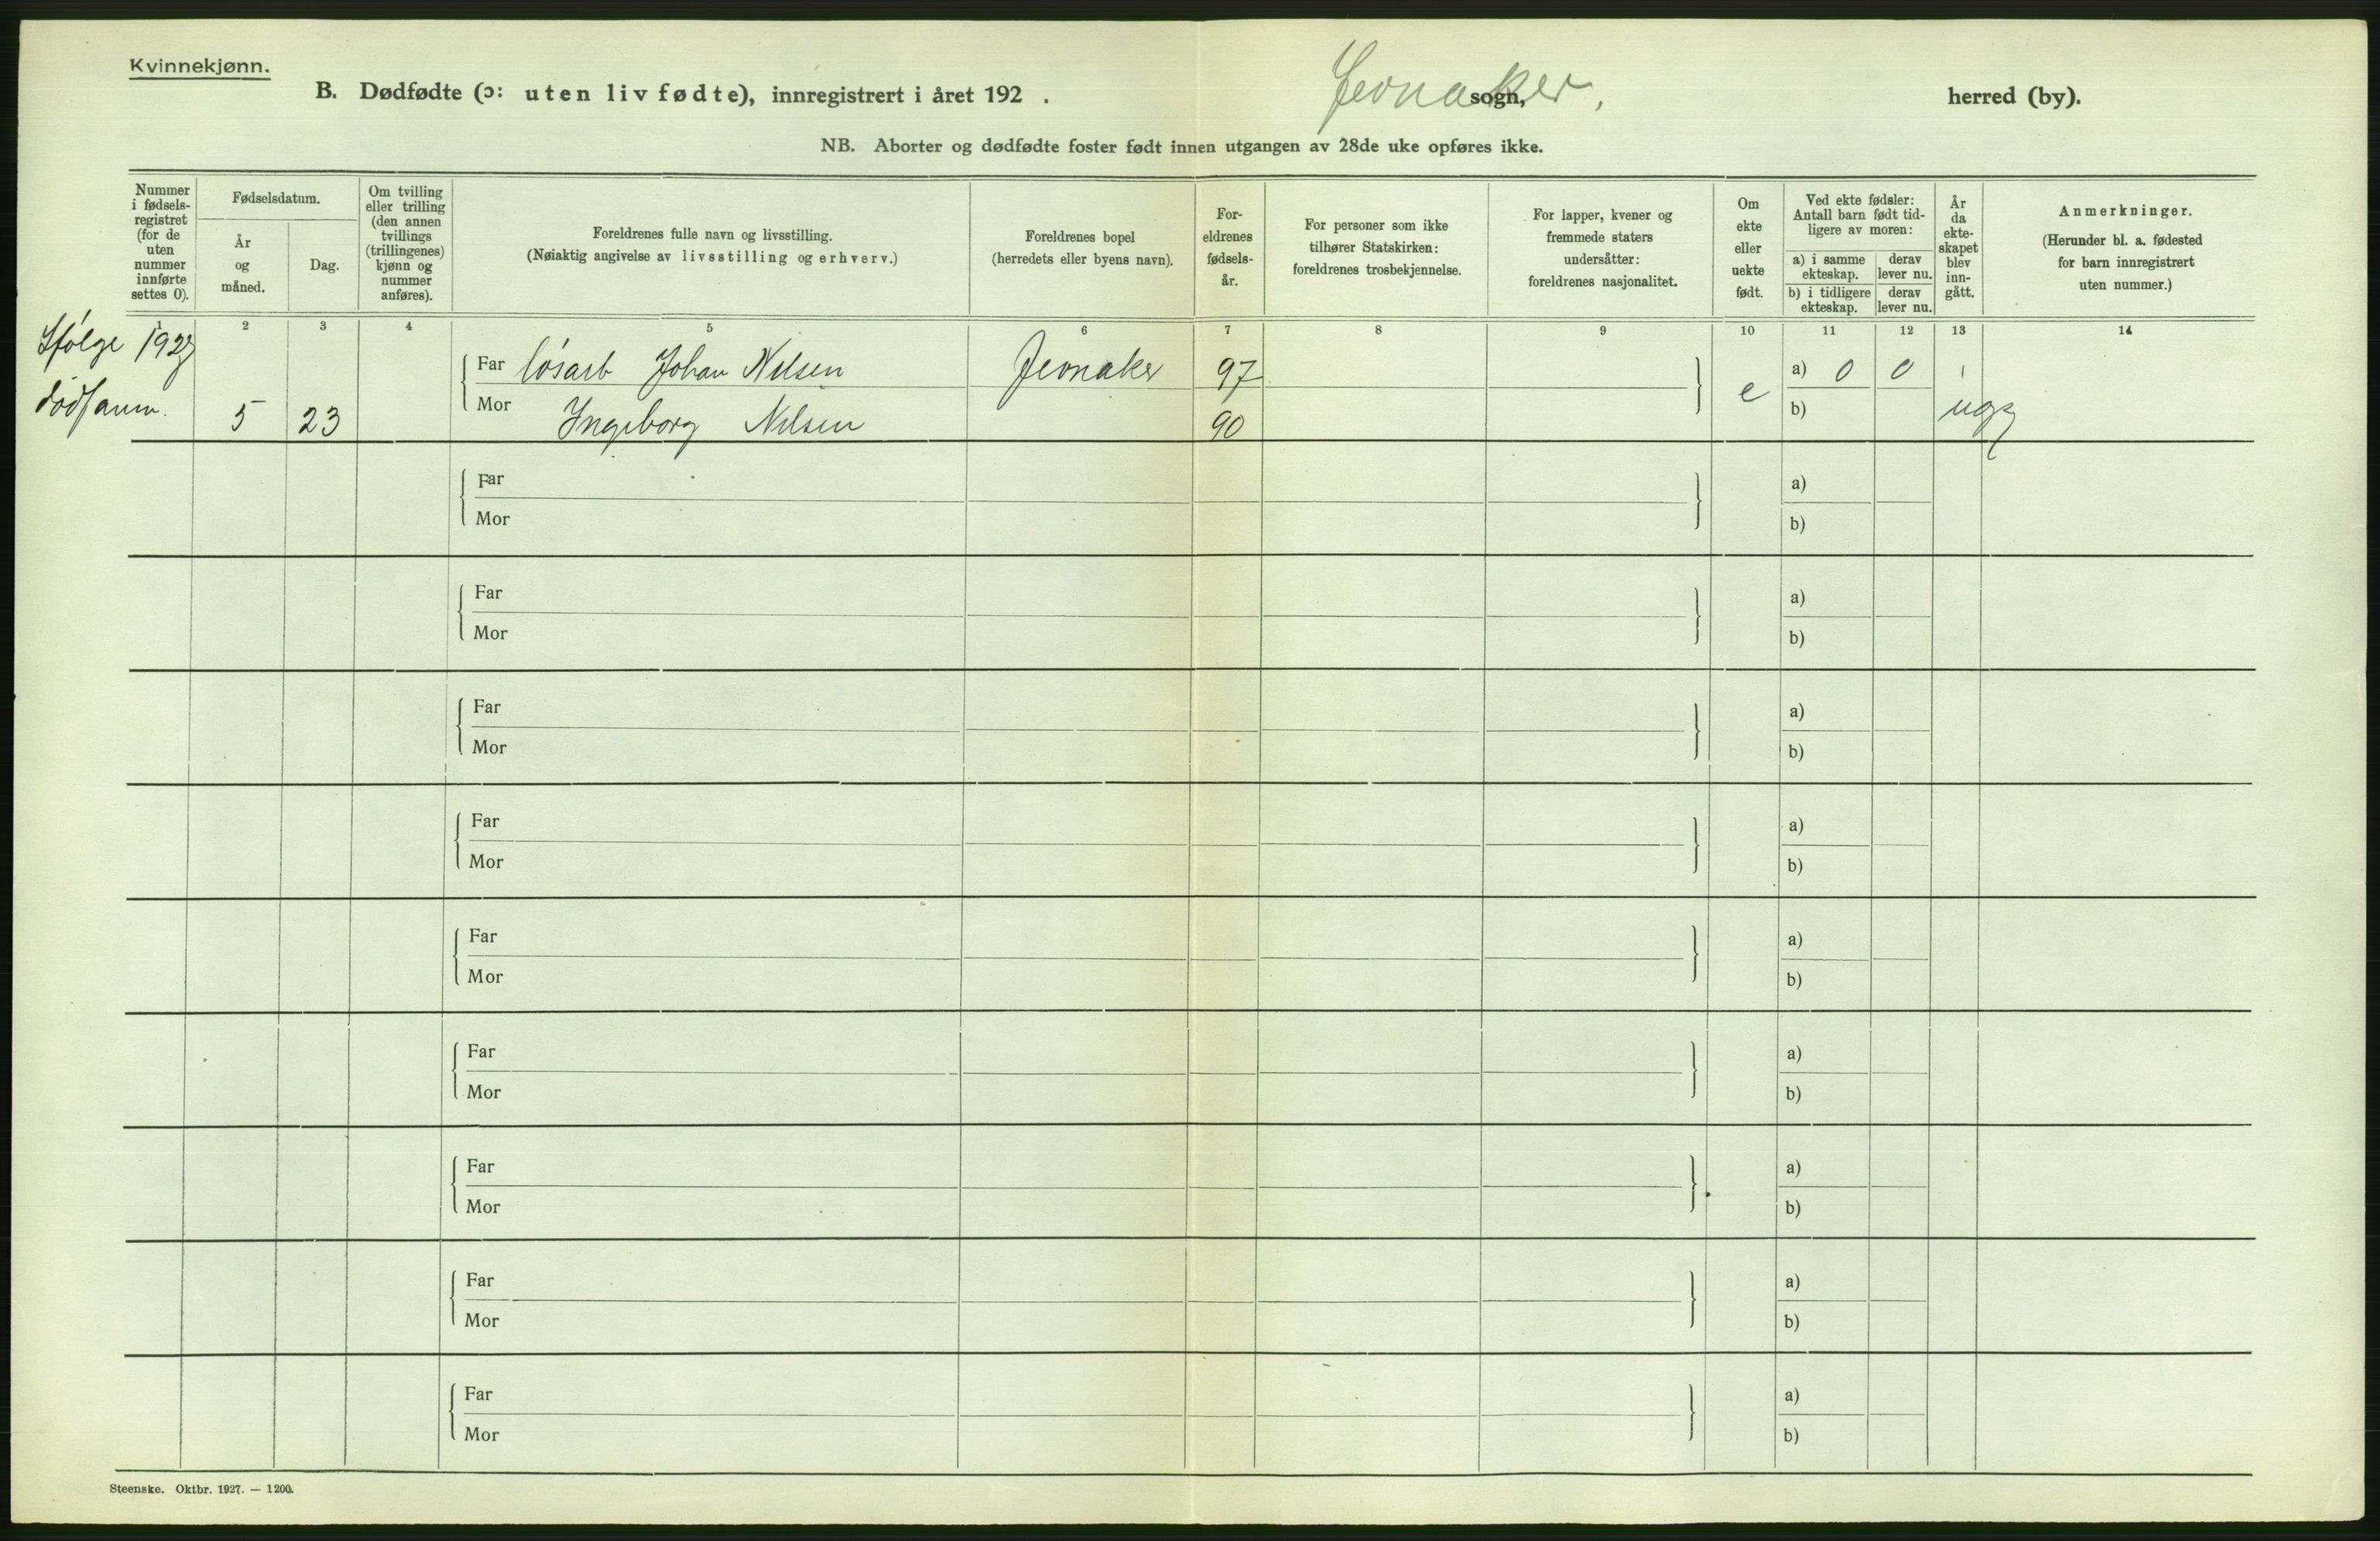 Kvinnekjønn.
B. Dødfødte (ɔ: uten liv fødte), innregistrert i året 192 . Jevnaker. sogn, herred (by).
NB. Aborter og dødfødte foster født innen utgangen av 28de uke opføres ikke.
Nummer i fødsels- registret (for de uten nummer innførte settes 0).
Fødselsdatum.
År og måned.
Dag.
Om tvilling eller trilling (den annen tvillings (trillingenes) kjønn og nummer anføres).
Foreldrenes fulle navn og livsstilling.
(Nøiaktig angivelse av livsstilling og erhverv.)
Foreldrenes bopel
(herredets eller byens navn).
For- eldrenes fødsels- år.
For personer som ikke tilhører Statskirken: foreldrenes trosbekjennelse.
For lapper, kvener og fremmede staters undersåtter: foreldrenes nasjonalitet.
Om ekte eller uekte født.
Ved ekte fødsler: Antall barn født tid- ligere av moren:
a) i samme ekteskap.
derav lever nu.
b) i tidligere ekteskap.
derav lever nu.
År da ekte- skapet blev inn- gått.
Anmerkninger.
(Herunder bl. a. fødested for barn innregistrert uten nummer.)
1 2 3 4 5 6 7 8 9 10 11 12 13 14
Ifølge 1927
Far løsarb Johan Nilsen Jevnaker 97 e a) 0 0
dødfanm. 5 23 Mor Ingeborg Nilsen 90 b) uopg
Far a)
Mor b)
Far a)
Mor b)
Far a)
Mor b)
Far a)
Mor b)
Far a)
Mor b)
Far a)
Mor b)
Far a)
Mor b)
Far a)
Mor b)
Far a)
Mor b)
Steenske. Oktbr. 1927. — 1200.